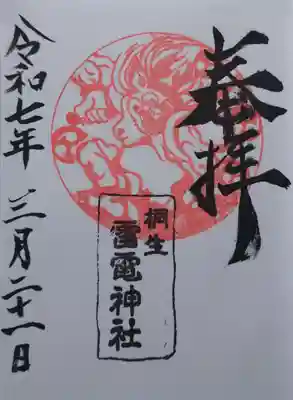 奉拝
桐生
雷電神社
令和七年三月二十一日